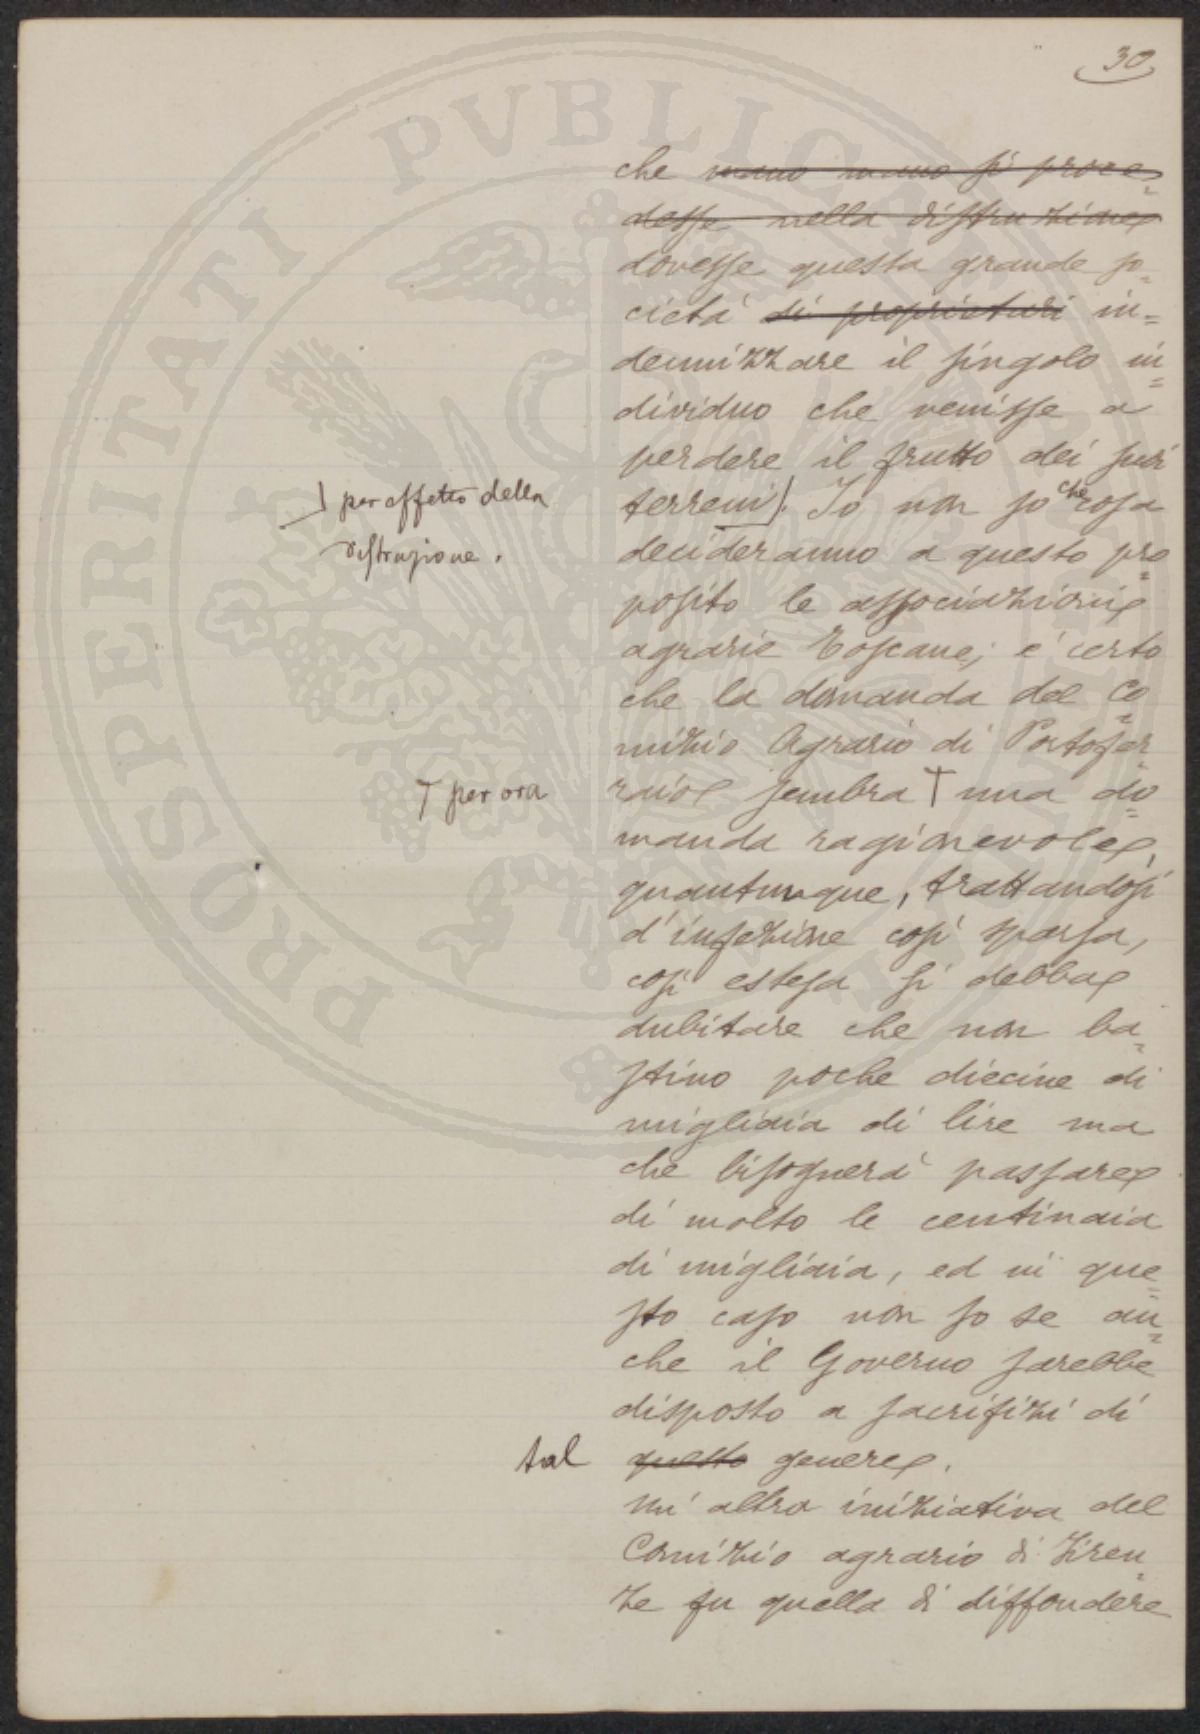 30
che mano mano si proce-
desse nella distruzione
dovesse questa grande so-
cietà di proprietari in=
dennizzare il singolo in=
dividuo che venisse a
perdere il frutto dei suoi
] per effetto della
distruzione.
terreni]. Io non so che cosa
decideranno a questo pro-
posito le associazioni
agrarie Toscane; è certo
che la domanda del Co=
mizio Agrario di Portofer-
† per ora
raio sembra † una do=
manda ragionevole,
quantunque, trattandosi
d'infezione così sparsa,
così estesa si debba
dubitare che non ba=
stino poche diecine di
migliaia di lire ma
che bisognerà passare
di molto le centinaia
di migliaia, ed in que=
sto caso non so se an=
che il Governo sarebbe
disposto a sacrifizi di
tal
questo genere.
un' altra iniziativa del
Comizio agrario di Firen-
ze fu quella di diffondere
PROSPERITATI PVBLICAE